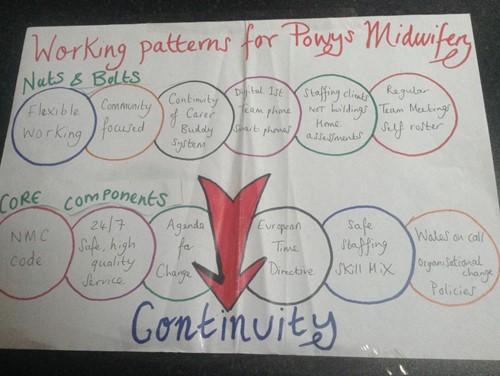 Working patterns for Powys Midwifery
Nuts & Bolts
Flexible
Working
Community
focused
Continuity
of Carer
Buddy
System
Digital 1st
Team phone
Smart phones
Staffing clients
Not buildings
Home
assessments
Regular
Team Meetings
Self roster
CORE COMPONENTS
NMC
Code
24/7
Safe, high
quality
Service
Agenda
for
Change
European
Time
Directive
Safe
Staffing
Skill Mix
Wales on call
Organisational
change
Policies
Continuity